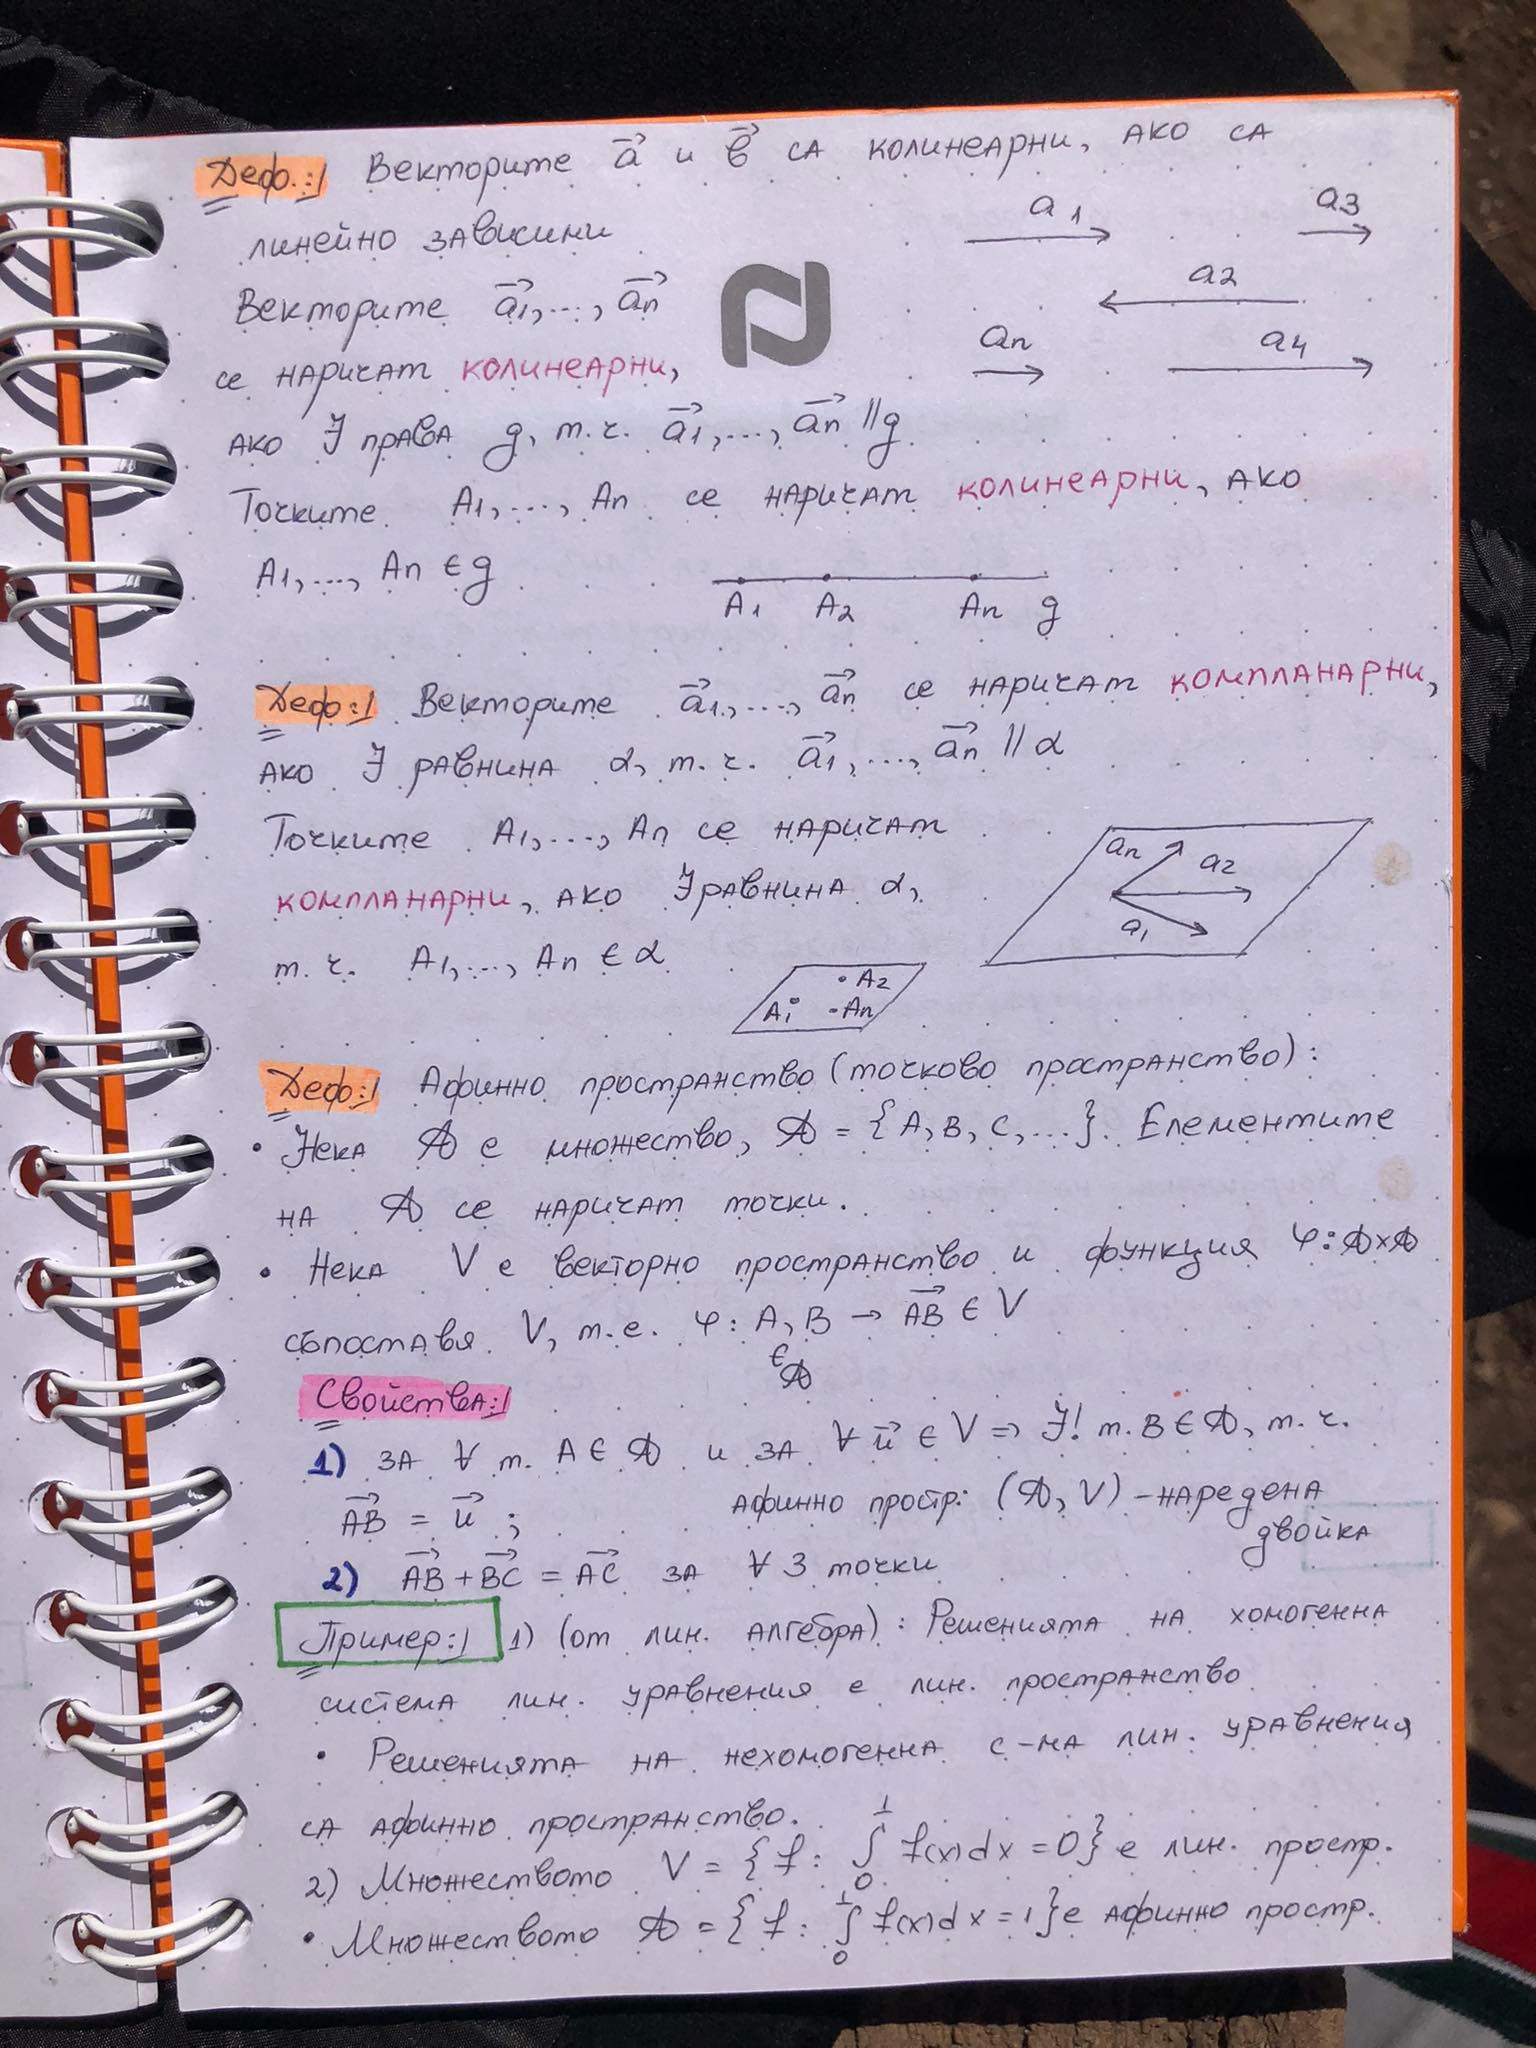 Деф.:| Векторите a⃗ и b⃗ са колинеарни, ако са
линейно зависими
a1 a3
Векторите a⃗1, ..., a⃗n
a2
се наричат колинеарни,
an a4
ако ∃ права g, т.ч. a⃗1, ..., a⃗n || g
Точките A1, ..., An се наричат колинеарни, ако
A1, ..., An ∈ g
A1 A2 An g
Деф:| Векторите a⃗1, ..., a⃗n се наричат компланарни,
ако ∃ равнина α, т.ч. a⃗1, ..., a⃗n || α
Точките A1, ..., An се наричат
компланарни, ако ∃ равнина α,
т.ч. A1, ..., An ∈ α
an a2
a1
A2
A1 An
Деф:| Афинно пространство (точково пространство):
• Нека 𝔸 е множество, 𝔸 = {A, B, C, ...}. Елементите
на 𝔸 се наричат точки.
• Нека V е векторно пространство и функция φ: 𝔸x𝔸
съпоставя V, т.е. φ: A, B → AB⃗ ∈ V
∈
𝔸
Свойства:|
1) за ∀ т. A ∈ 𝔸 и за ∀ u⃗ ∈ V => ∃! т. B ∈ 𝔸, т.ч.
AB⃗ = u⃗ ;
афинно простр: (𝔸, V) - наредена
двойка
2) AB⃗ + BC⃗ = AC⃗ за ∀ 3 точки
Пример:| 1) (от лин. алгебра): Решенията на хомогенна
система лин. уравнения е лин. пространство
• Решенията на нехомогенна с-ма лин. уравнения
са афинно пространство.
2) Множеството V = {f: ∫₀¹ f(x)dx = 0} е лин. простр.
• Множеството 𝔸 = {f: ∫₀¹ f(x)dx = 1} е афинно простр.